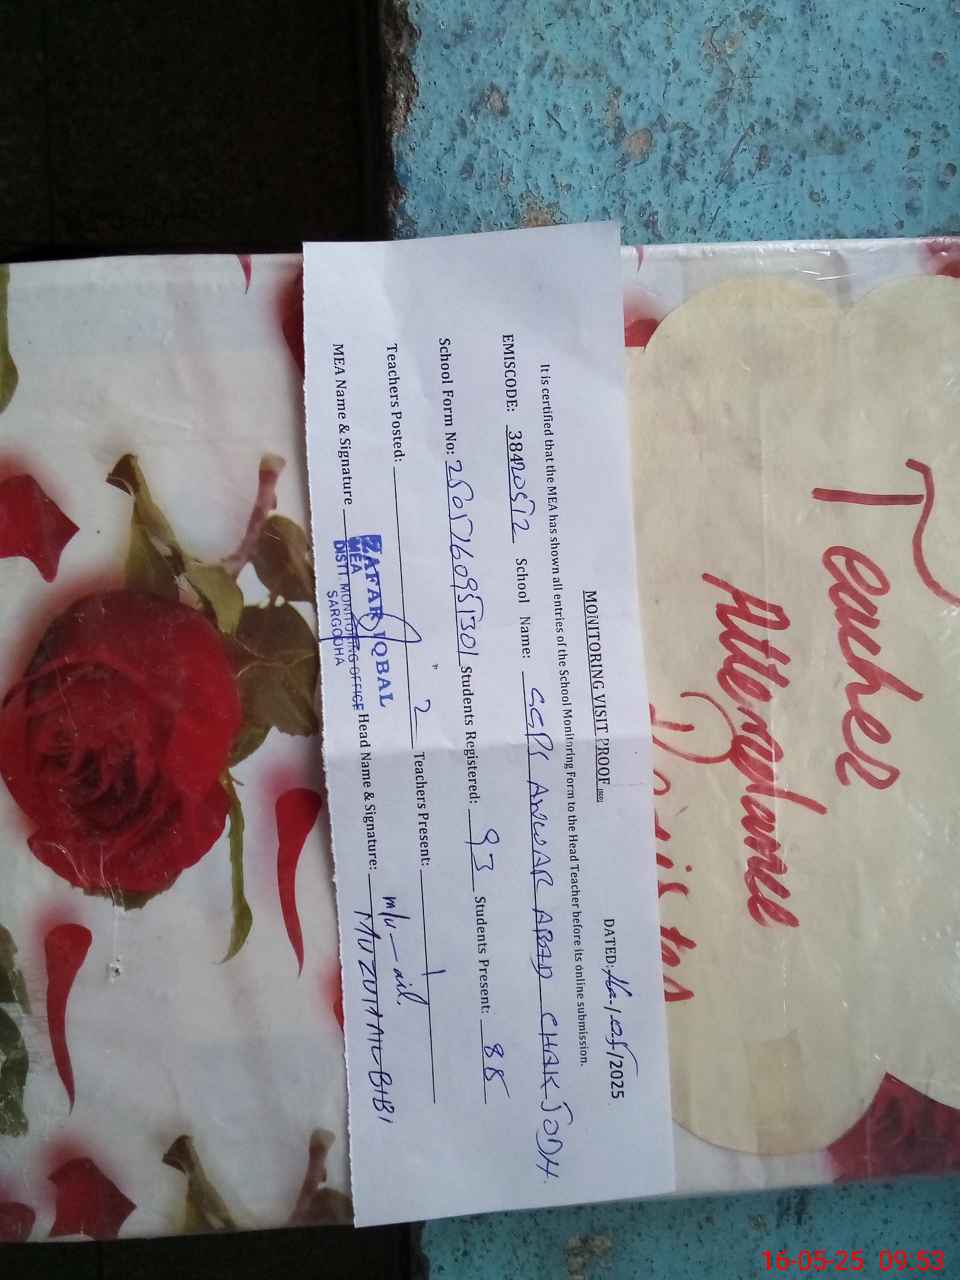 Teacher
Attendance
MONITORING VISIT PROOF
DATED: 16/05/2025
It is certified that the MEA has shown all entries of the School Monitoring Form to the Head Teacher before its online submission.
EMISCODE: 38420512 School Name: GGPS ANWAR ABAD CHAK JODH.
School Form No: Students Registered: 93 Students Present: 85
Teachers Posted: 2 Teachers Present: 1
MEA Name & Signature ZAFAR IQBAL Head Name & Signature:
MEA
DISTT. MONITORING OFFICE
SARGODHA
BIBI
16-05-25 09:53